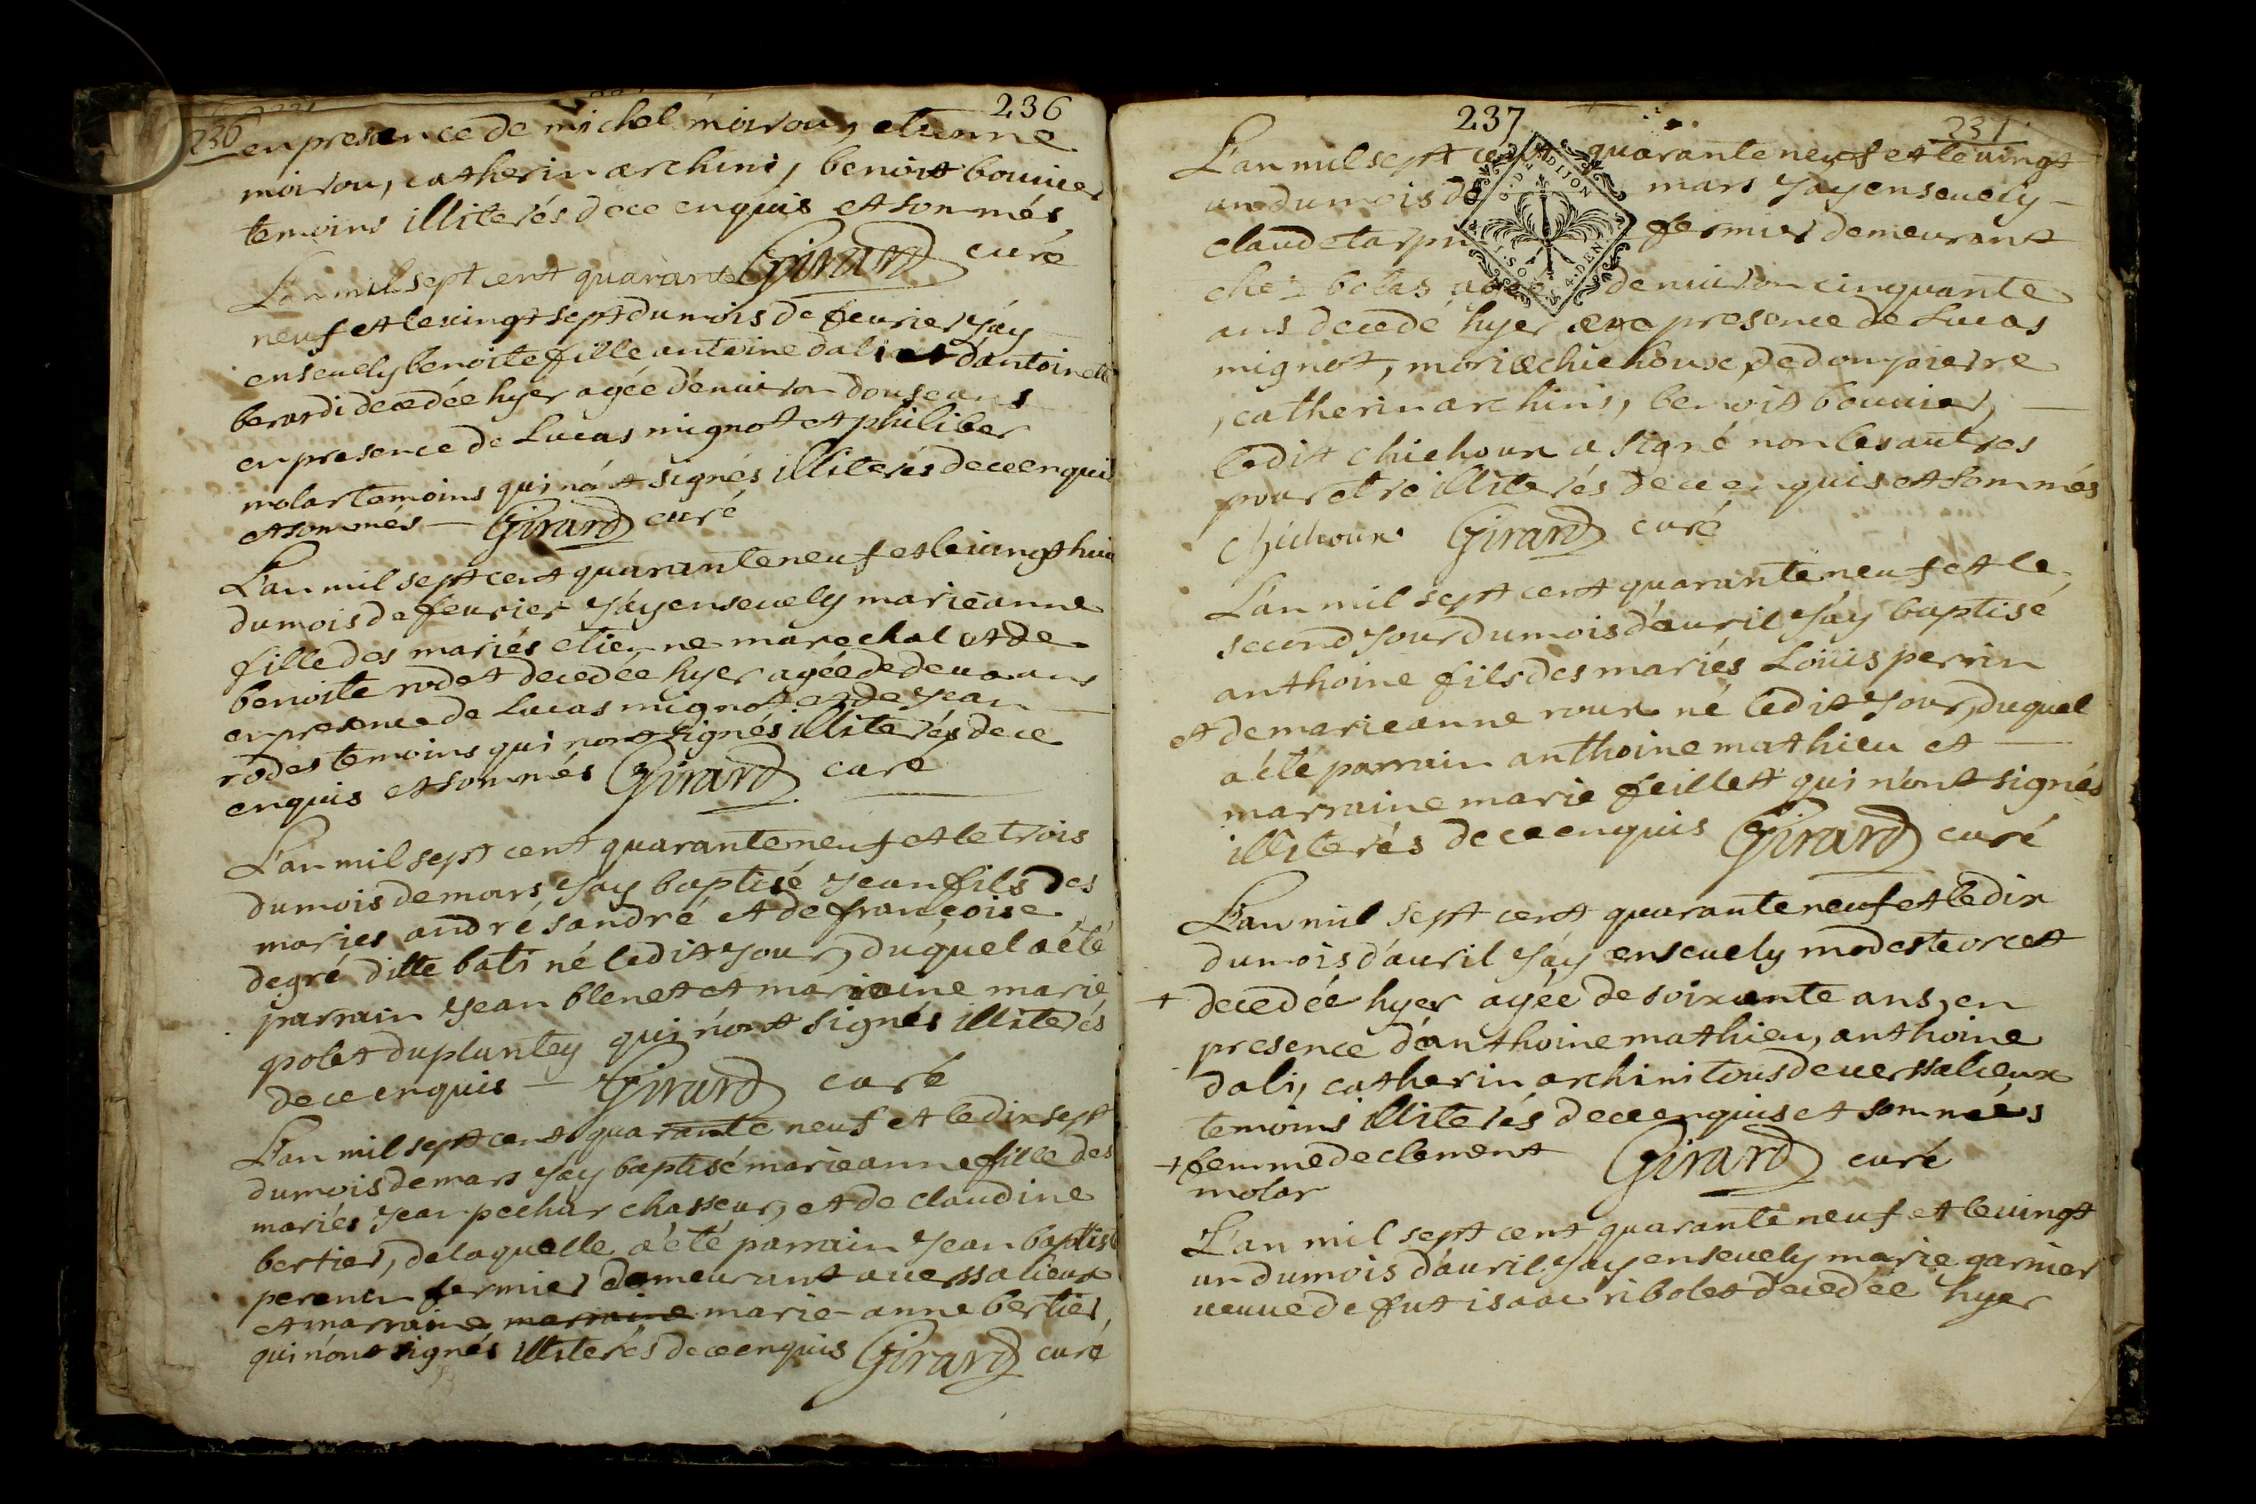 236
236
en presence de michel moirou, etienne
moirou, catherin archini, benoit bouvier
temoins illiterés de ce enquis et sommés
Girard curé
L'an mil sept cent quarante
neuf et le vingt sept du mois de fevrier j'ay
ensevely benoite fille antoine dali et d'antoinette
berardi decedée hyer agée d'environ douse ans
en presence de Lucas mignot et philiber
molar temoins qui n'ont signés illiterés de ce enquis
et sommés — Girard curé
L'an mil sept cent quarante neuf et le vingt huit
du mois de fevrier j'ay ensevely marie anne
fille des mariés etienne marechal et de
benoite rodet decedée hyer agée de deux ans
en presence de Lucas mignot et de jean
rodes temoins qui n'ont signés illiterés de ce
enquis et sommés Girard curé
L'an mil sept cent quarante neuf et le trois
du mois de mars j'ay baptisé jean fils des
maries andré sandré et de françoise
degré ditte bati né ledit jour, duquel a été
parrain jean blenet et maraine marie
polet duplantey qui n'ont signés illiterés
de ce enquis — Girard curé
L'an mil sept cent quarante neuf et le dix sept
du mois de mars j'ay baptisé marie anne fille des
mariés jean pechur chasseur, et de claudine
bertier, de laquelle a été parrain jean baptiste
perenin fermier demeurant a verssalieux
et marraine marraine marie-anne bertier
qui n'ont signés illiterés de ce enquis Girard curé
237
237
L'an mil sept cent quarante neuf et le vingt
un du mois de mars j'ay ensevely —
claude tarpin fermier demeurant
chez bolas agé d'environ cinquante
G. DE DIJON
1. SOL 4. DEN
ans decedé hyer en presence de Lucas
mignot, marie chichoux de dompierre
, catherin archini, benoit bouvier, —
ledit chichoux a signé non les autres
pour etre illiterés de ce enquis et sommés
chichoux Girard curé
L'an mil sept cent quarante neuf et le
second jour du mois d'avril j'ay baptisé
anthoine fils des mariés Loüis perrin
et de marie anne roux né ledit jour, duquel
a été parrain anthoine mathieu et —
marraine marie feillet qui n'ont signés
illiterés de ce enquis Girard curé
L'an mil sept cent quarante neuf et le dix
du mois d'avril j'ay ensevely modeste orcet
+ decedée hyer agée de soixante ans, en
presence d'anthoine mathieu, anthoine
dali, catherin archini tous de verssalieux
temoins illiterés de ce enquis et sommés
+ femme de clement Girard curé
molar
L'an mil sept cent quarante neuf et le vingt
un du mois d'avril j'ay ensevely marie garnier
veuve de fut isaac ribolet decedée hyer